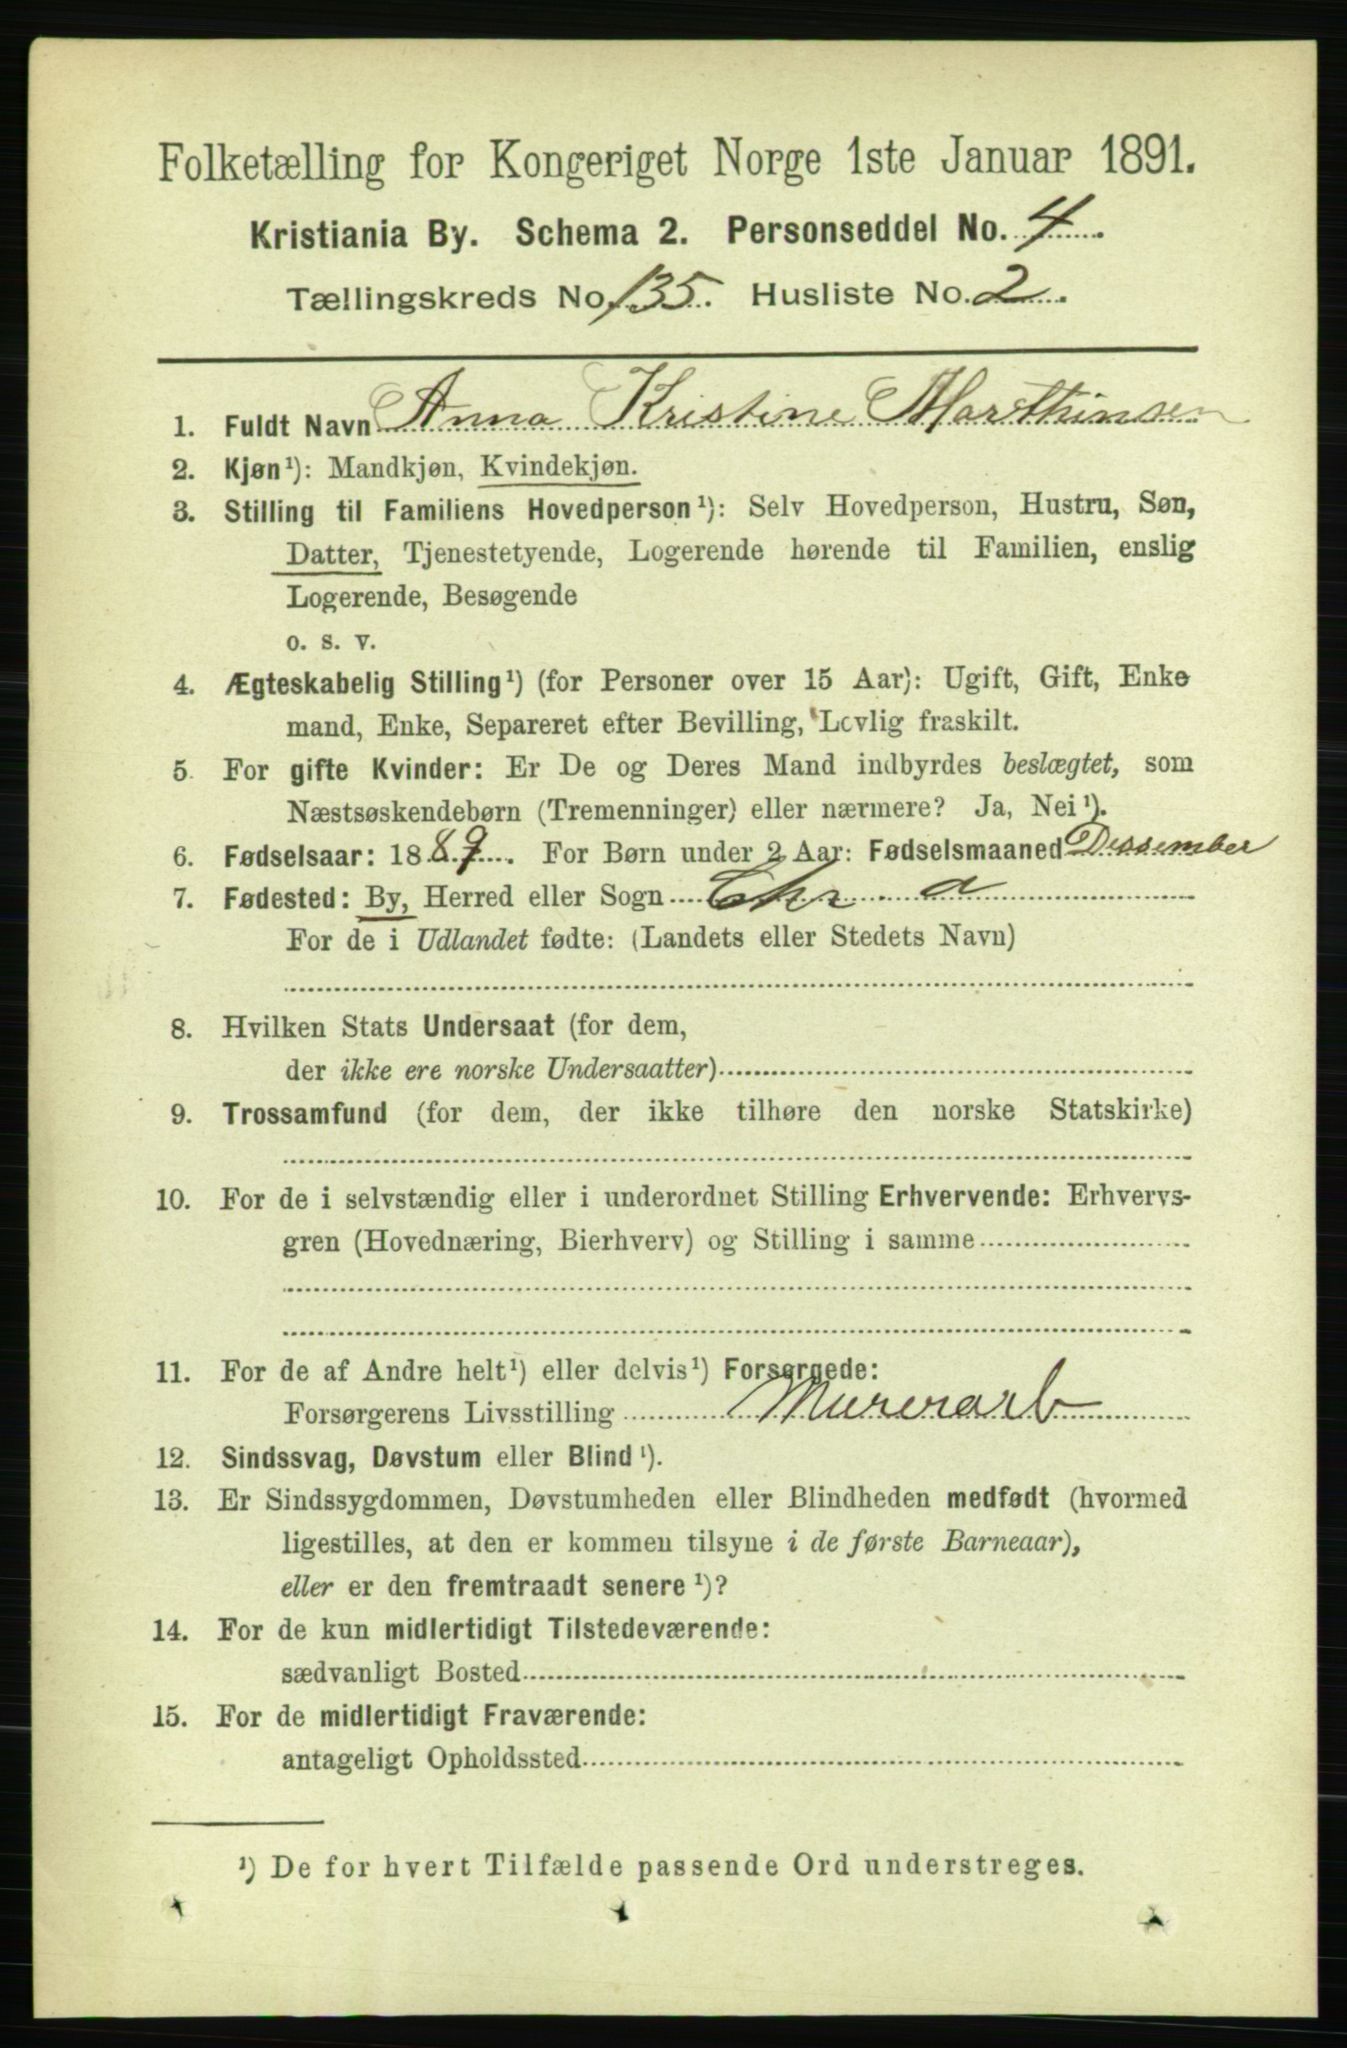 Folketælling for Kongeriget Norge 1ste Januar 1891.
Kristiania By. Schema 2. Personseddel No. 4
Tællingskreds No. 135. Husliste No. 2
1. Fuldt Navn Anna Kristine Marthinsen
2. Kjøn¹): Mandkjøn, Kvindekjøn.
3. Stilling til Familiens Hovedperson¹): Selv Hovedperson, Hustru, Søn,
Datter, Tjenestetyende, Logerende hørende til Familien, enslig
Logerende, Besøgende
o. s. v.
4. Ægteskabelig Stilling¹) (for Personer over 15 Aar): Ugift, Gift, Enke
mand, Enke, Separeret efter Bevilling, Lovlig fraskilt.
5. For gifte Kvinder: Er De og Deres Mand indbyrdes beslægtet, som
Næstsøskendebørn (Tremenninger) eller nærmere? Ja, Nei¹).
6. Fødselsaar: 1889. For Børn under 2 Aar: Fødselsmaaned Dessember
7. Fødested: By, Herred eller Sogn Chr. a
For de i Udlandet fødte: (Landets eller Stedets Navn)
8. Hvilken Stats Undersaat (for dem,
der ikke ere norske Undersaatter)
9. Trossamfund (for dem, der ikke tilhøre den norske Statskirke)
10. For de i selvstændig eller i underordnet Stilling Erhvervende: Erhvervs-
gren (Hovednæring, Bierhverv) og Stilling i samme
11. For de af Andre helt¹) eller delvis¹) Forsørgede:
Forsørgerens Livsstilling Murerarb
12. Sindssvag, Døvstum eller Blind¹).
13. Er Sindssygdommen, Døvstumheden eller Blindheden medfødt (hvormed
ligestilles, at den er kommen tilsyne i de første Barneaar),
eller er den fremtraadt senere¹)?
14. For de kun midlertidigt Tilstedeværende:
sædvanligt Bosted
15. For de midlertidigt Fraværende:
antageligt Opholdssted
¹) De for hvert Tilfælde passende Ord understreges.